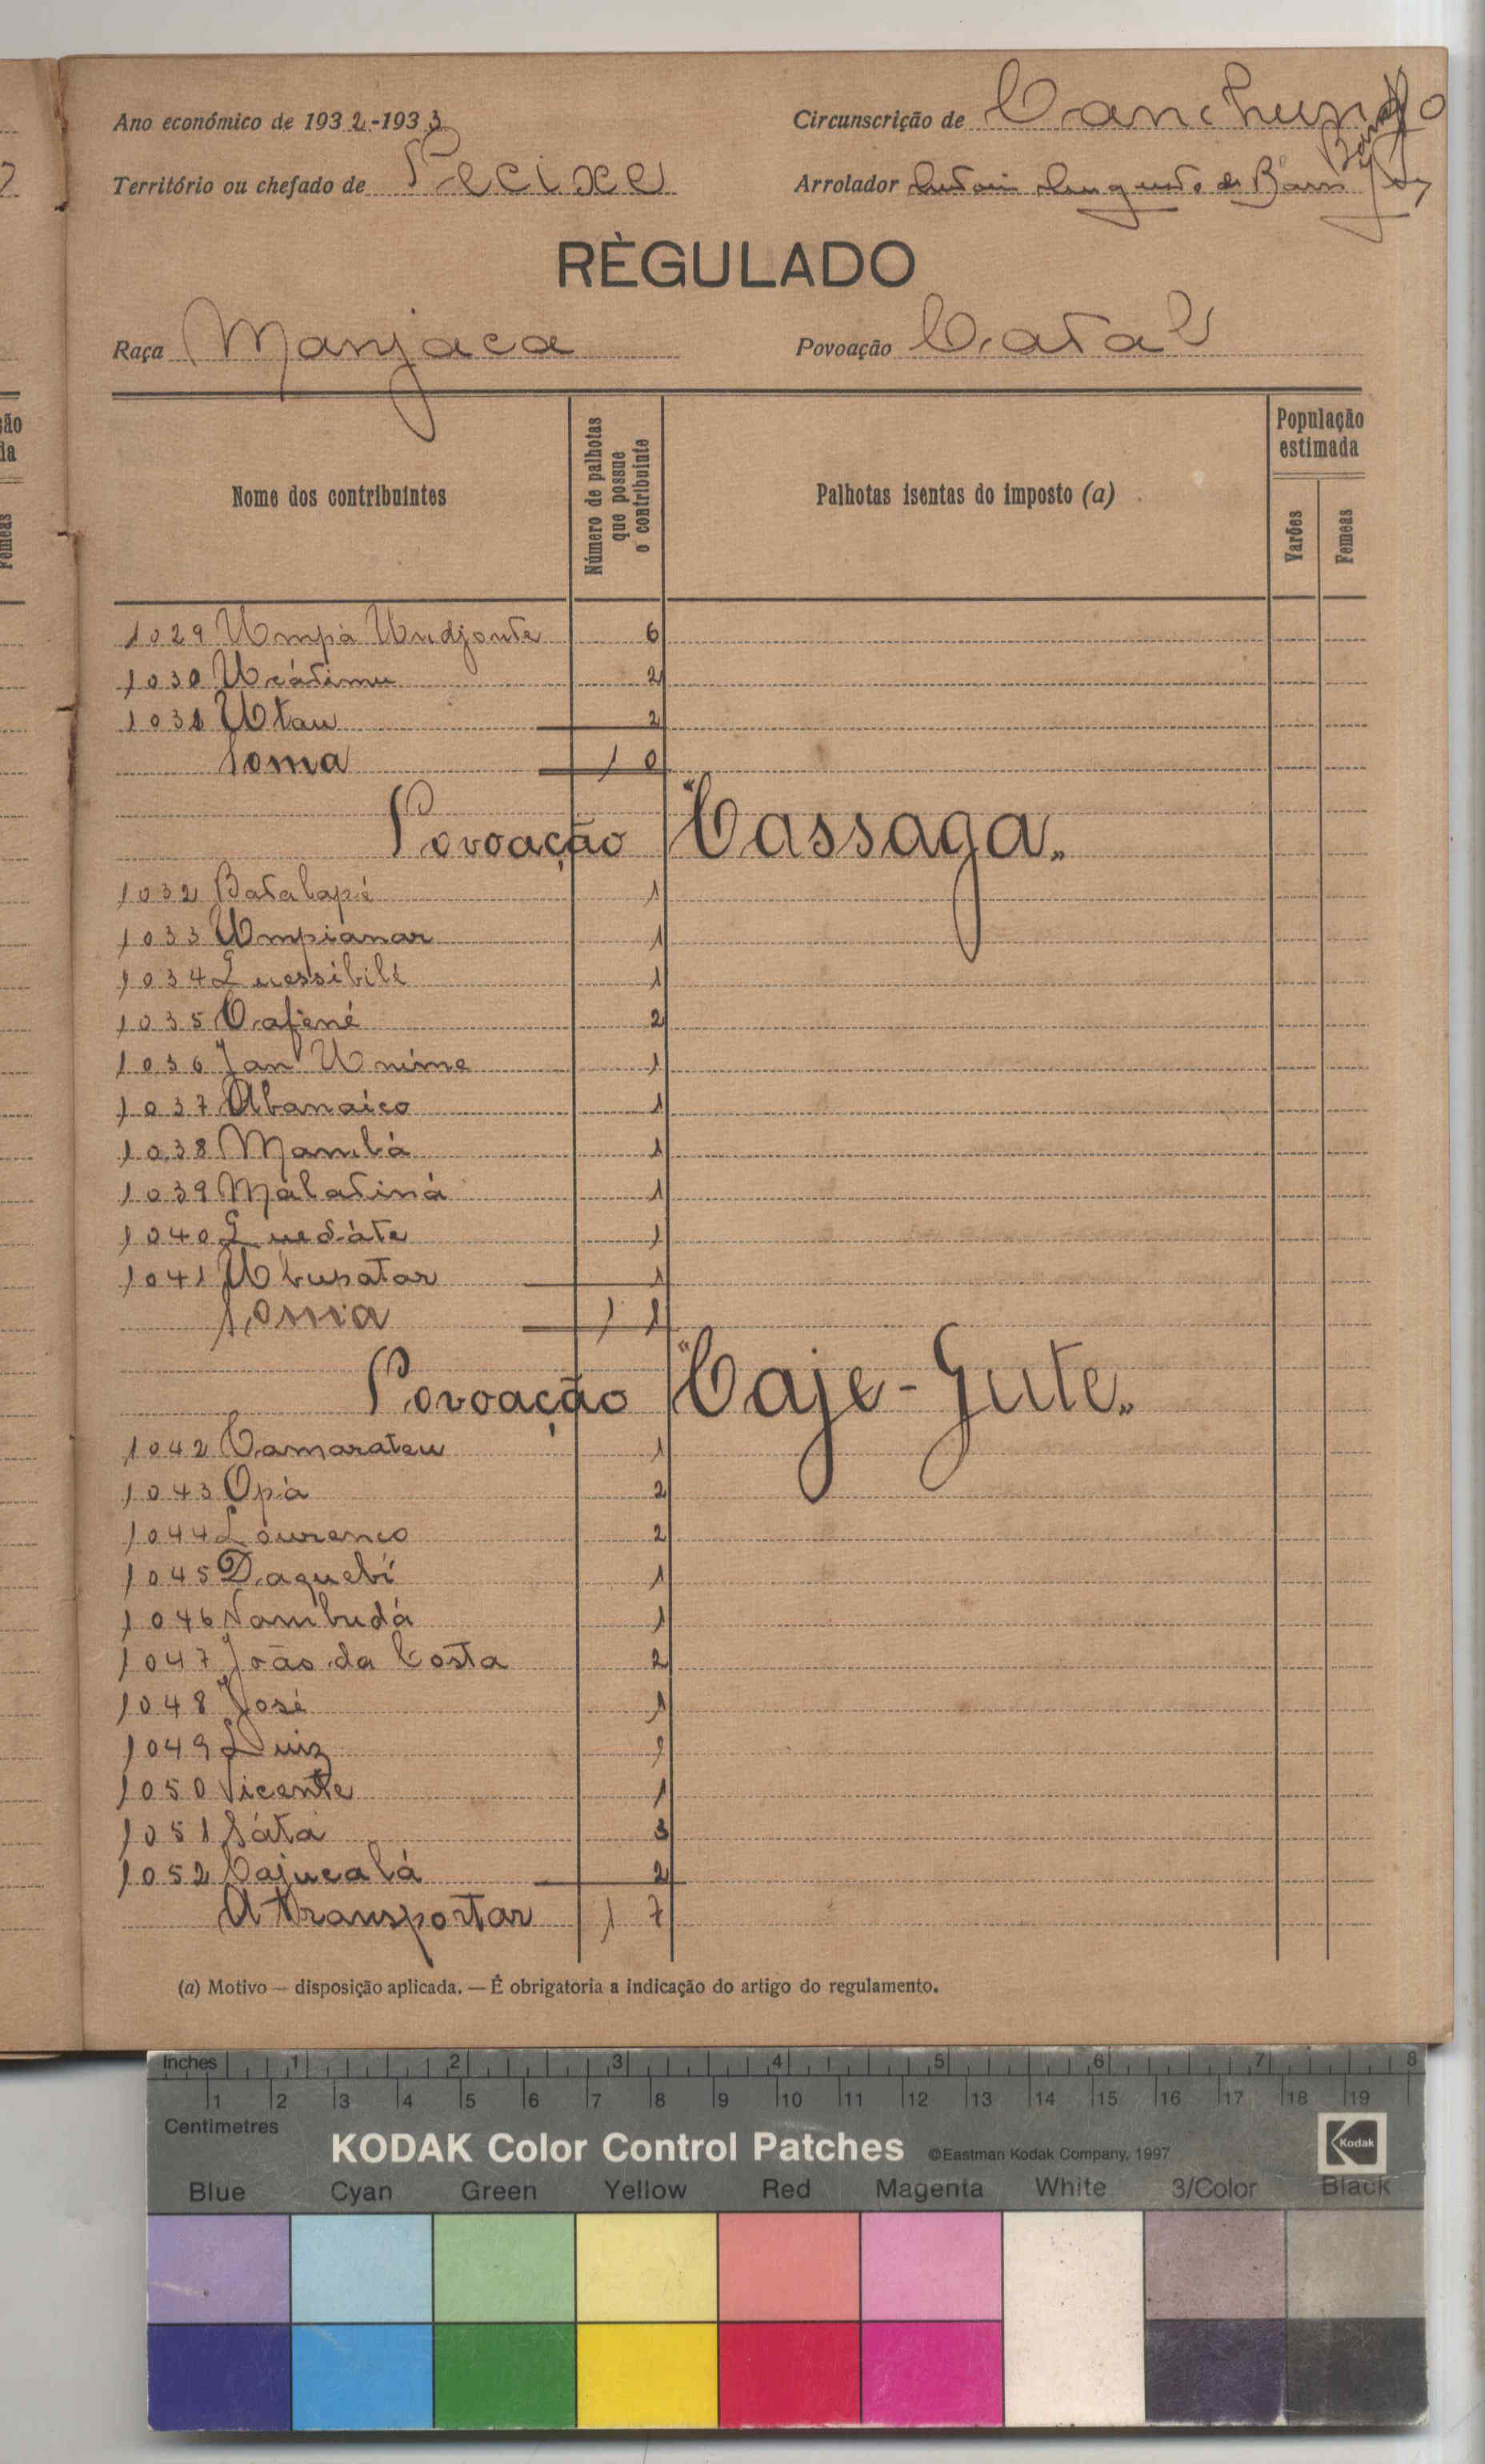 Ano económico de 1932-1933
Circunscrição de Canchungo
Território ou chefado de Pecixe
Arrolador Augusto de Barros
RÈGULADO
Raça Manjaca
Povoação Catal
Nome dos contribuintes
Número de palhotas que possue o contribuinte
Palhotas isentas do imposto (a)
População estimada
Varões
Femeas
1029 Umpà Undjonte 6
1030 Ucátimu 2
1031 Utau 2
Soma 10
Povoação "Cassaga"
1032 Batalapé 1
1033 Umpianar 1
1034 Quessibilé 1
1035 Cafené 2
1036 Jan Unime 1
1037 Abanaico 1
1038 Mambà 1
1039 Màlatiná 1
1040 Quedáte 1
1041 Ubupatar 1
Soma 11
Povoação "Caje-Gute"
1042 Camarateu 1
1043 Opà 2
1044 Lourenco 2
1045 Daquebi 1
1046 Nambudá 1
1047 João da Costa 2
1048 José 1
1049 Luiz 1
1050 Vicente 1
1051 Sáta 3
1052 Cajucalá 2
A transportar 17
(a) Motivo — disposição aplicada. — É obrigatoria a indicação do artigo do regulamento.
Inches 1 2 3 4 5 6 7 8
1 2 3 4 5 6 7 8 9 10 11 12 13 14 15 16 17 18 19
Centimetres
KODAK Color Control Patches ©Eastman Kodak Company, 1997 Kodak
Blue Cyan Green Yellow Red Magenta White 3/Color Black